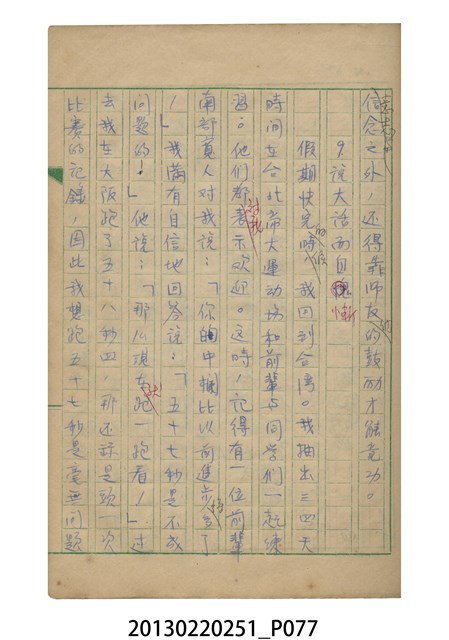 信念之外，还得靠师友的鼓励才能竟功。
9.说大话而自愧惭
假期快完的时候，我回到台湾。我抽出三四天
时间在台北帝大运动场和前辈与同学们一起练
习。他们都对我表示欢迎。这时，记得有一位前辈
南部真人对我说：「你的中栏比以前进步多了
！」我满有自信地回答说：「五十七秒是不成
问题的！」他说：「那么现在跑一跑看！」过
去我在大阪跑了五十八秒四，那还算是头一次
比赛的记录，因此我想跑五十七秒是毫无问题
20130220251_P077